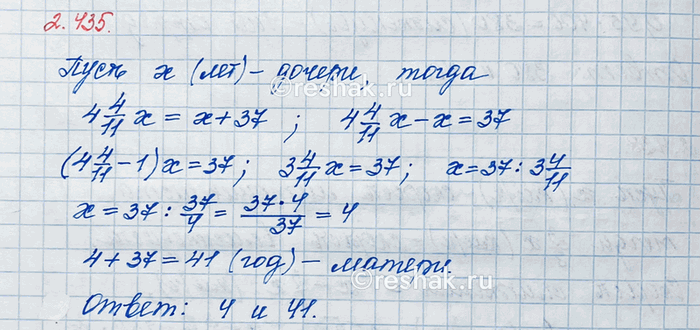 2.435.
Пусть x (лет) – дочери, тогда
4 4/11 x = x + 37 ; 4 4/11 x – x = 37
(4 4/11 – 1) x = 37 ; 3 4/11 x = 37 ; x = 37 : 3 4/11
x = 37 : 37/4 = 37·4/37 = 4
4 + 37 = 41 (год) – матери.
Ответ: 4 и 41.
©reshak.ru
©reshak.ru